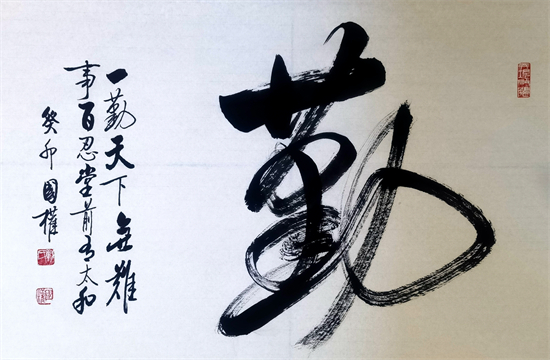 勤
一勤天下無難
事百忍堂前有太和
癸卯國權